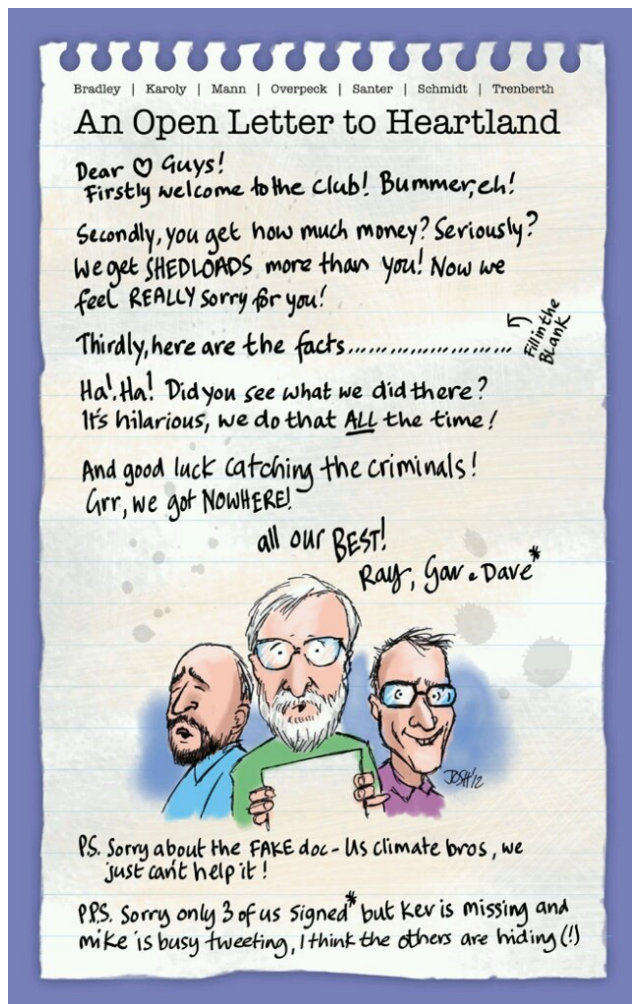 Bradley | Karoly | Mann | Overpeck | Santer | Schmidt | Trenberth
An Open Letter to Heartland
Dear ♡ Guys!
Firstly welcome to the club! Bummer, eh!
Secondly, you get how much money? Seriously?
We get SHEDLOADS more than you! Now we
feel REALLY sorry for you!
Thirdly, here are the facts........................
Fill in the
BLANK
Ha! Ha! Did you see what we did there?
It's hilarious, we do that ALL the time!
And good luck catching the criminals!
Grr, we got NOWHERE!
all our BEST!
Ray, Gav & Dave*
JOSH'12
P.S. Sorry about the FAKE doc - Us climate bros, we
just can't help it!
P.P.S. Sorry only 3 of us signed* but Kev is missing and
mike is busy tweeting, I think the others are hiding (!)